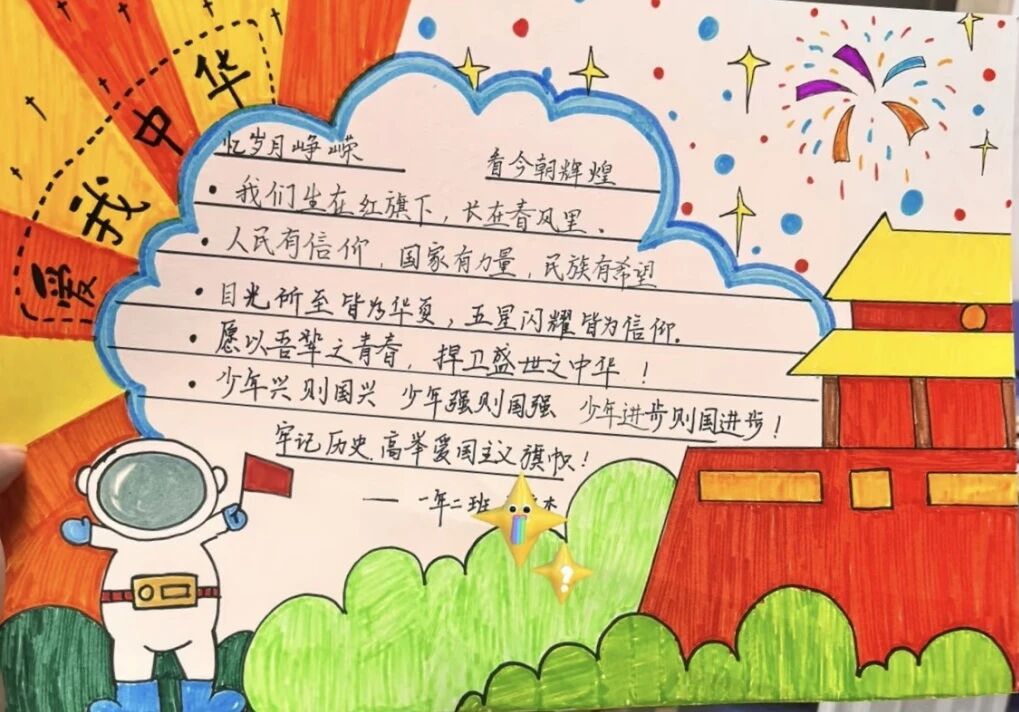 爱我中华
忆岁月峥嵘 看今朝辉煌
• 我们生在红旗下，长在春风里．
• 人民有信仰，国家有力量，民族有希望
• 目光所至皆为华夏，五星闪耀皆为信仰．
• 愿以吾辈之青春，捍卫盛世之中华！
• 少年兴则国兴 少年强则国强 少年进步则国进步！
牢记历史．高举爱国主义旗帜！
— 一年二班